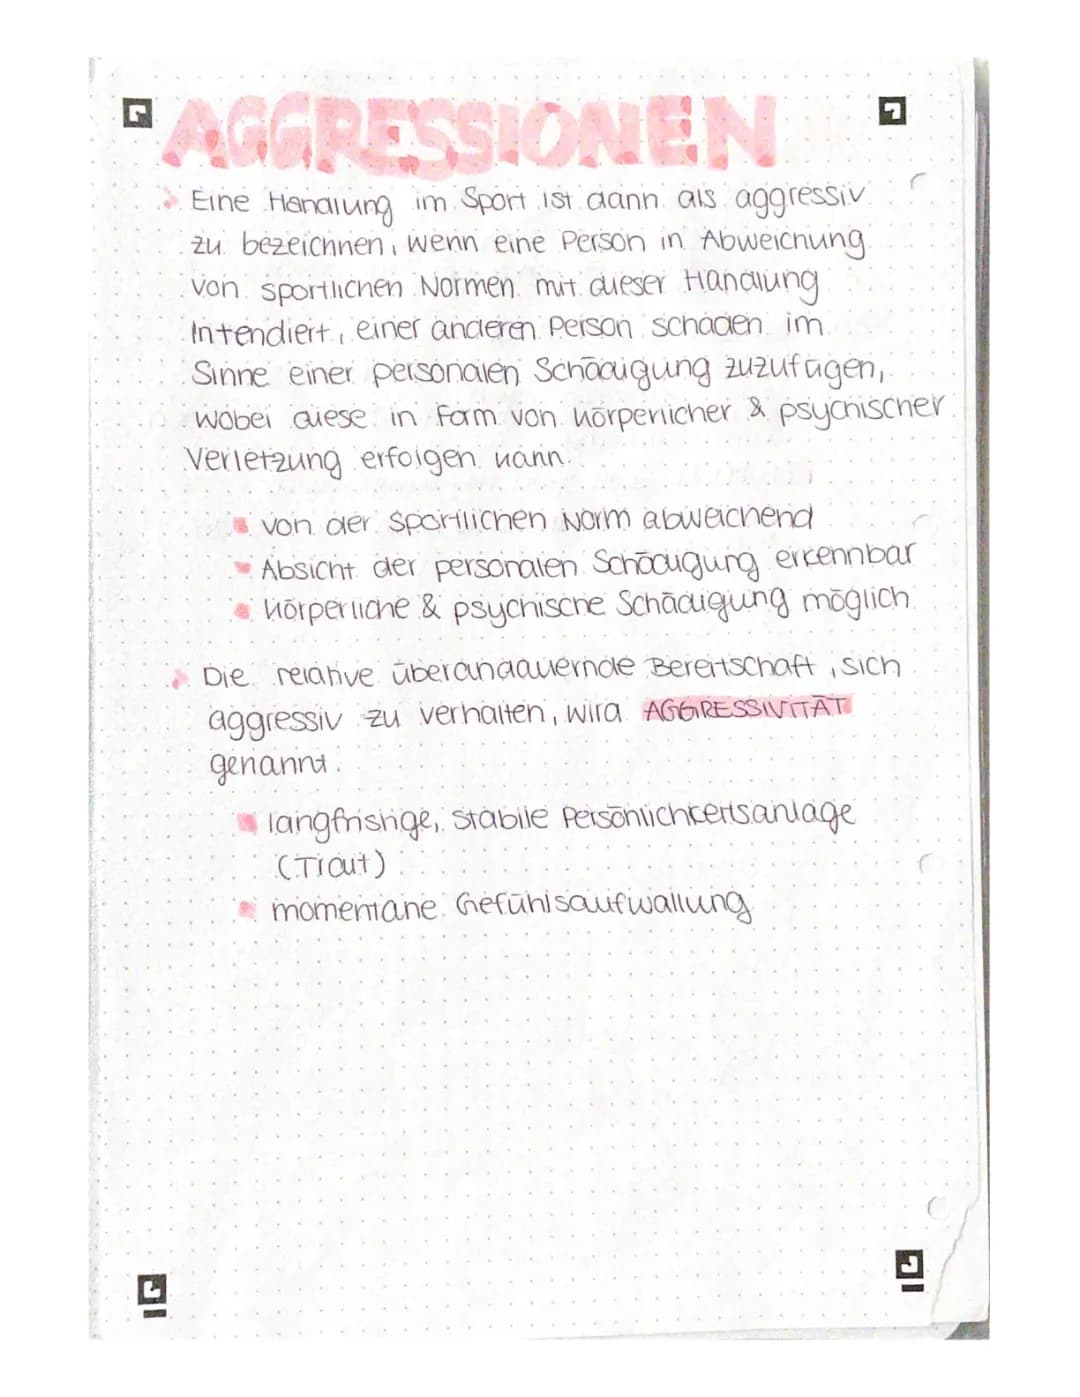 AGGRESSIONEN
Eine Handlung im Sport ist dann als aggressiv
zu bezeichnen, wenn eine Person in Abweichung
von sportlichen Normen mit dieser Handlung
Intendiert, einer anderen Person schaden im
Sinne einer personalen Schädigung zuzufügen,
wobei diese in Form von körperlicher & psychischer
Verletzung erfolgen kann.
von der sportlichen Norm abweichend
Absicht der personalen Schädigung erkennbar
körperliche & psychische Schädigung möglich
Die relative überandauernde Bereitschaft, sich
aggressiv zu verhalten, wird AGGRESSIVITÄT
genannt.
langfristige, stabile Persönlichkeitsanlage
(Trait)
momentane Gefühlsaufwallung